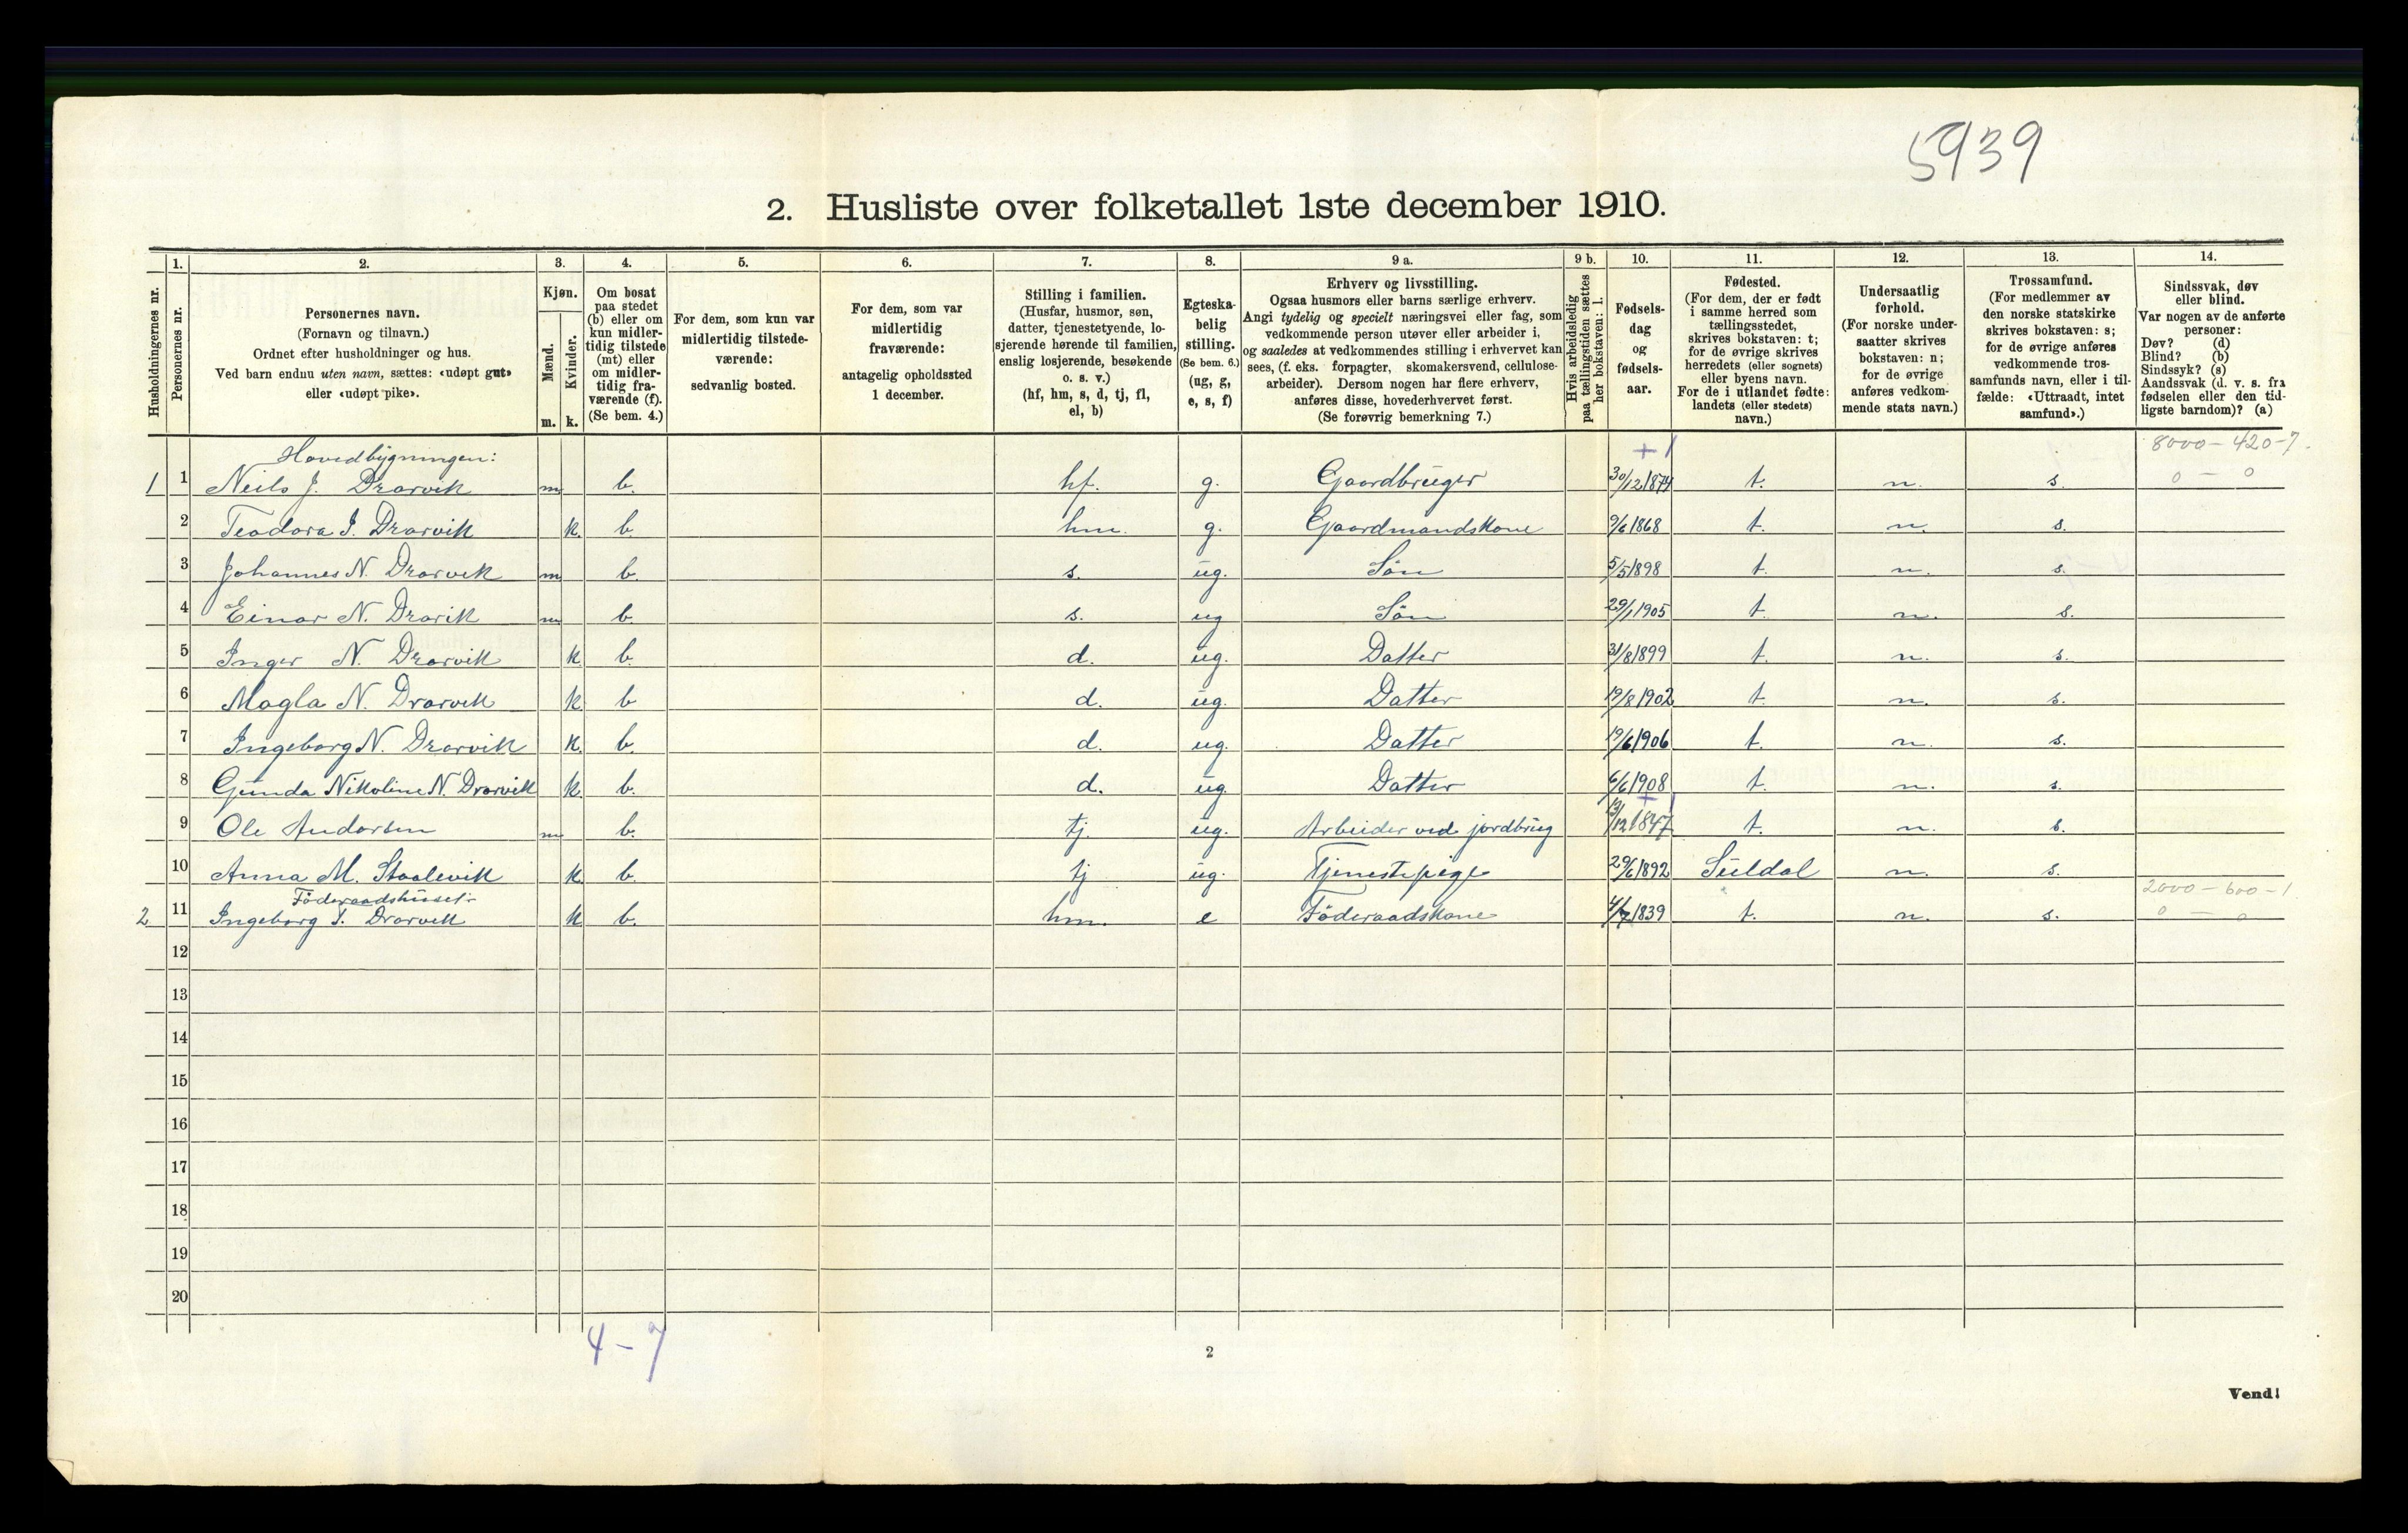 5939
2. Husliste over folketallet 1ste december 1910.
Husholdningernes nr.
1. Personernes nr.
2. Personernes navn.
(Fornavn og tilnavn.)
Ordnet efter husholdninger og hus.
Ved barn endnu uten navn, sættes: «udøpt gut»
eller «udøpt pike».
3. Kjøn.
Mænd. Kvinder.
m. k.
4. Om bosat
paa stedet
(b) eller om
kun midler-
tidig tilstede
(mt) eller
om midler-
tidig fra-
værende (f).
(Se bem. 4.)
5. For dem, som kun var
midlertidig tilstede-
værende:
sedvanlig bosted.
6. For dem, som var
midlertidig
fraværende:
antagelig opholdssted
1 december.
7. Stilling i familien.
(Husfar, husmor, søn,
datter, tjenestetyende, lo-
sjerende hørende til familien,
enslig losjerende, besøkende
o. s. v.)
(hf, hm, s, d, tj, fl,
el, b)
8. Egteska-
belig
stilling.
(Se bem. 6.)
(ug, g,
e, s, f)
9 a. Erhverv og livsstilling.
Ogsaa husmors eller barns særlige erhverv.
Angi tydelig og specielt næringsvei eller fag, som
vedkommende person utøver eller arbeider i,
og saaledes at vedkommendes stilling i erhvervet kan
sees, (f. eks. forpagter, skomakersvend, cellulose-
arbeider). Dersom nogen har flere erhverv,
anføres disse, hovederhvervet først.
(Se forøvrig bemerkning 7.)
9 b. Hvis arbeidsledig
paa tællingstiden sættes
her bokstaven: l.
10. Fødsels-
dag
og
fødsels-
aar.
11. Fødested.
(For dem, der er født
i samme herred som
tællingsstedet,
skrives bokstaven: t;
for de øvrige skrives
herredets (eller sognets)
eller byens navn.
For de i utlandet fødte:
landets (eller stedets)
navn.)
12. Undersaatlig
forhold.
(For norske under-
saatter skrives
bokstaven: n;
for de øvrige
anføres vedkom-
mende stats navn.)
13. Trossamfund.
(For medlemmer av
den norske statskirke
skrives bokstaven: s;
for de øvrige anføres
vedkommende tros-
samfunds navn, eller i til-
fælde: «Uttraadt, intet
samfund».)
14. Sindssvak, døv
eller blind.
Var nogen av de anførte
personer:
Døv? (d)
Blind? (b)
Sindssyk? (s)
Aandssvak (d. v. s. fra
fødselen eller den tid-
ligste barndom)? (a)
Hovedbygningen: + 1 8000 - 420 - 7.
1 1 Neils J. Drarvik m b. hf. g. Gaardbruger 30/12 1874 t. n. s. 0 - 0
2 Teodora I. Drarvik k. b. hm. g. Gaardmandskone 9/6 1868 t. n. s.
3 Johannes N. Drarvik m b. s. ug. Søn 5/5 1898 t. n. s.
4 Einar N. Drarik m b. s. ug Søn 29/1 1905 t. n. s.
5 Inger N. Drarvik k b. d. ug. Datter 31/8 1899 t. n. s.
6 Magla N. Drarvik k. b d. ug. Datter 19/8 1902 t. n. s.
7 Ingeborg N. Drarvik k. b. d. ug. Datter 19/6 1906 t. n. s.
8 Gunda Nikoline N. Drarvik k. b. d. ug. Datter 6/6 1908 t. n. s.
+ 1
9 Ole Andersen m b. tj. ug. Arbeider ved jordbrug 13/12 1847 t. n. s.
10 Anna M. Staalevik k. b. tj ug. Tjenestepige 29/6 1892 Suldal n. s.
Föderaadshuset: 2000 - 600 - 1
2 11 Ingeborg T. Drarvik k b. hm. e Föderaadskone 4/7 1839 t. n. s. 0 - 0
12
13
14
15
16
17
18
19
20
4 - 7
2
Vend!